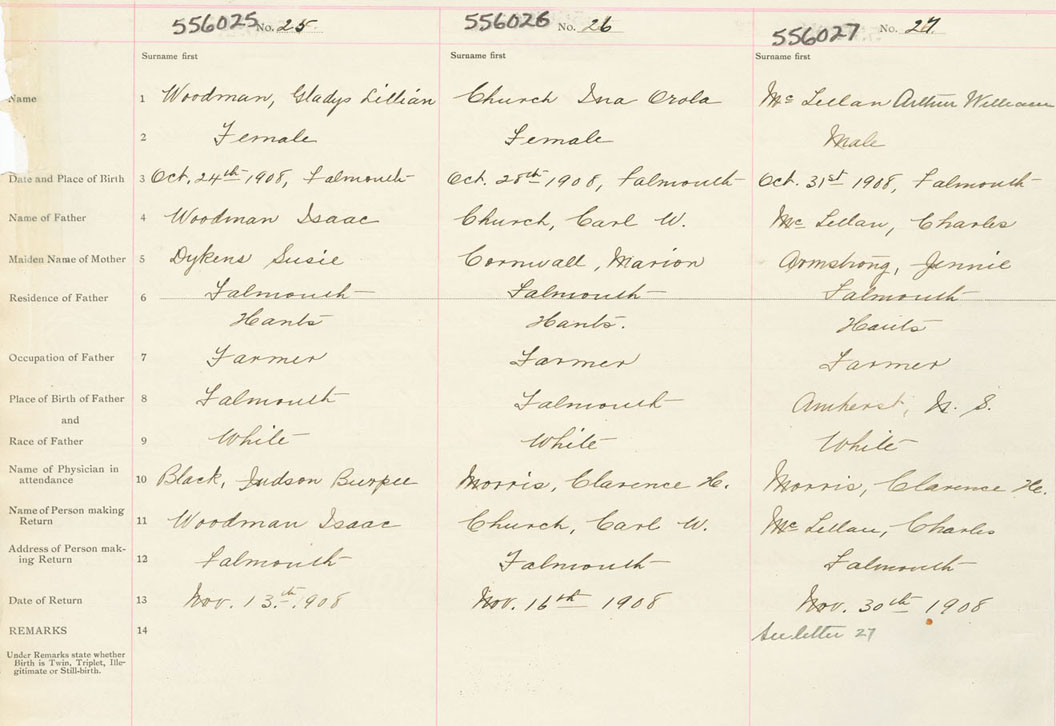 556025 No. 25 556026 No. 26 556027 No. 27
Surname first Surname first Surname first
Name 1 Woodman, Gladys Lillian Church Ina Orola Mc Lellan Arthur William
2 Female Female Male
Date and Place of Birth 3 Oct. 24th 1908, Falmouth Oct. 28th 1908, Falmouth Oct. 31st 1908, Falmouth
Name of Father 4 Woodman Isaac Church, Carl W. Mc Lellan, Charles
Maiden Name of Mother 5 Dykens Susie Cornwall, Marion Armstrong, Jennie
Residence of Father 6 Falmouth Falmouth Falmouth
Hants Hants. Hants
Occupation of Father 7 Farmer Farmer Farmer
Place of Birth of Father 8 Falmouth Falmouth Amherst, N. S.
and
Race of Father 9 White White White
Name of Physician in
attendance 10 Black, Judson Burpee Morris, Clarence H. Morris, Clarence H.
Name of Person making
Return 11 Woodman Isaac Church, Carl W. Mc Lellan, Charles
Address of Person mak-
ing Return 12 Falmouth Falmouth Falmouth
Date of Return 13 Nov. 13.th.908 Nov. 16th 1908 Nov. 30th 1908
REMARKS 14 See letter 27
Under Remarks state whether
Birth is Twin, Triplet, Ille-
gitimate or Still-birth.